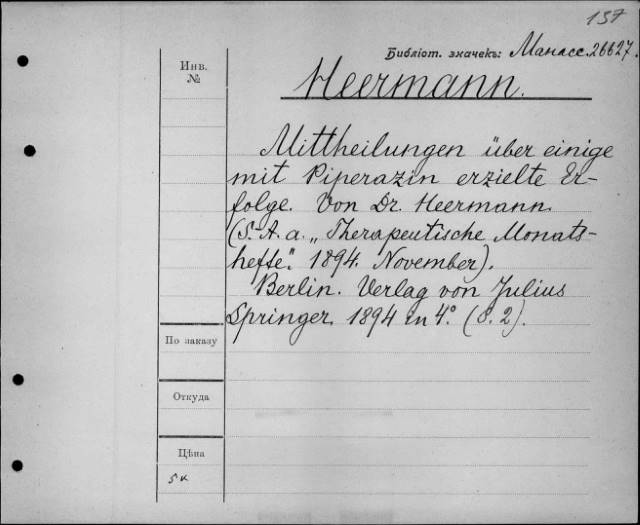 137
Инв.
№
Библіот. значекъ: Манасс. 26627.
Heermann.
Mittheilungen über einige
mit Piperazin erzielte Er-
folge. Von Dr. Heermann.
(S.-A. a. „Therapeutische Monats-
hefte“. 1894. November).
Berlin. Verlag von Julius
Springer. 1894 in 4°. (S. 2).
По заказу
Откуда
Цѣна
5 к